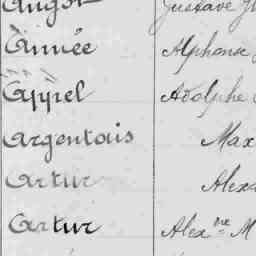 Angot Gustave
Année Alphonse
Appel Adolphe
Argentais Max
Artur Alexa
Artur Alex.dre M